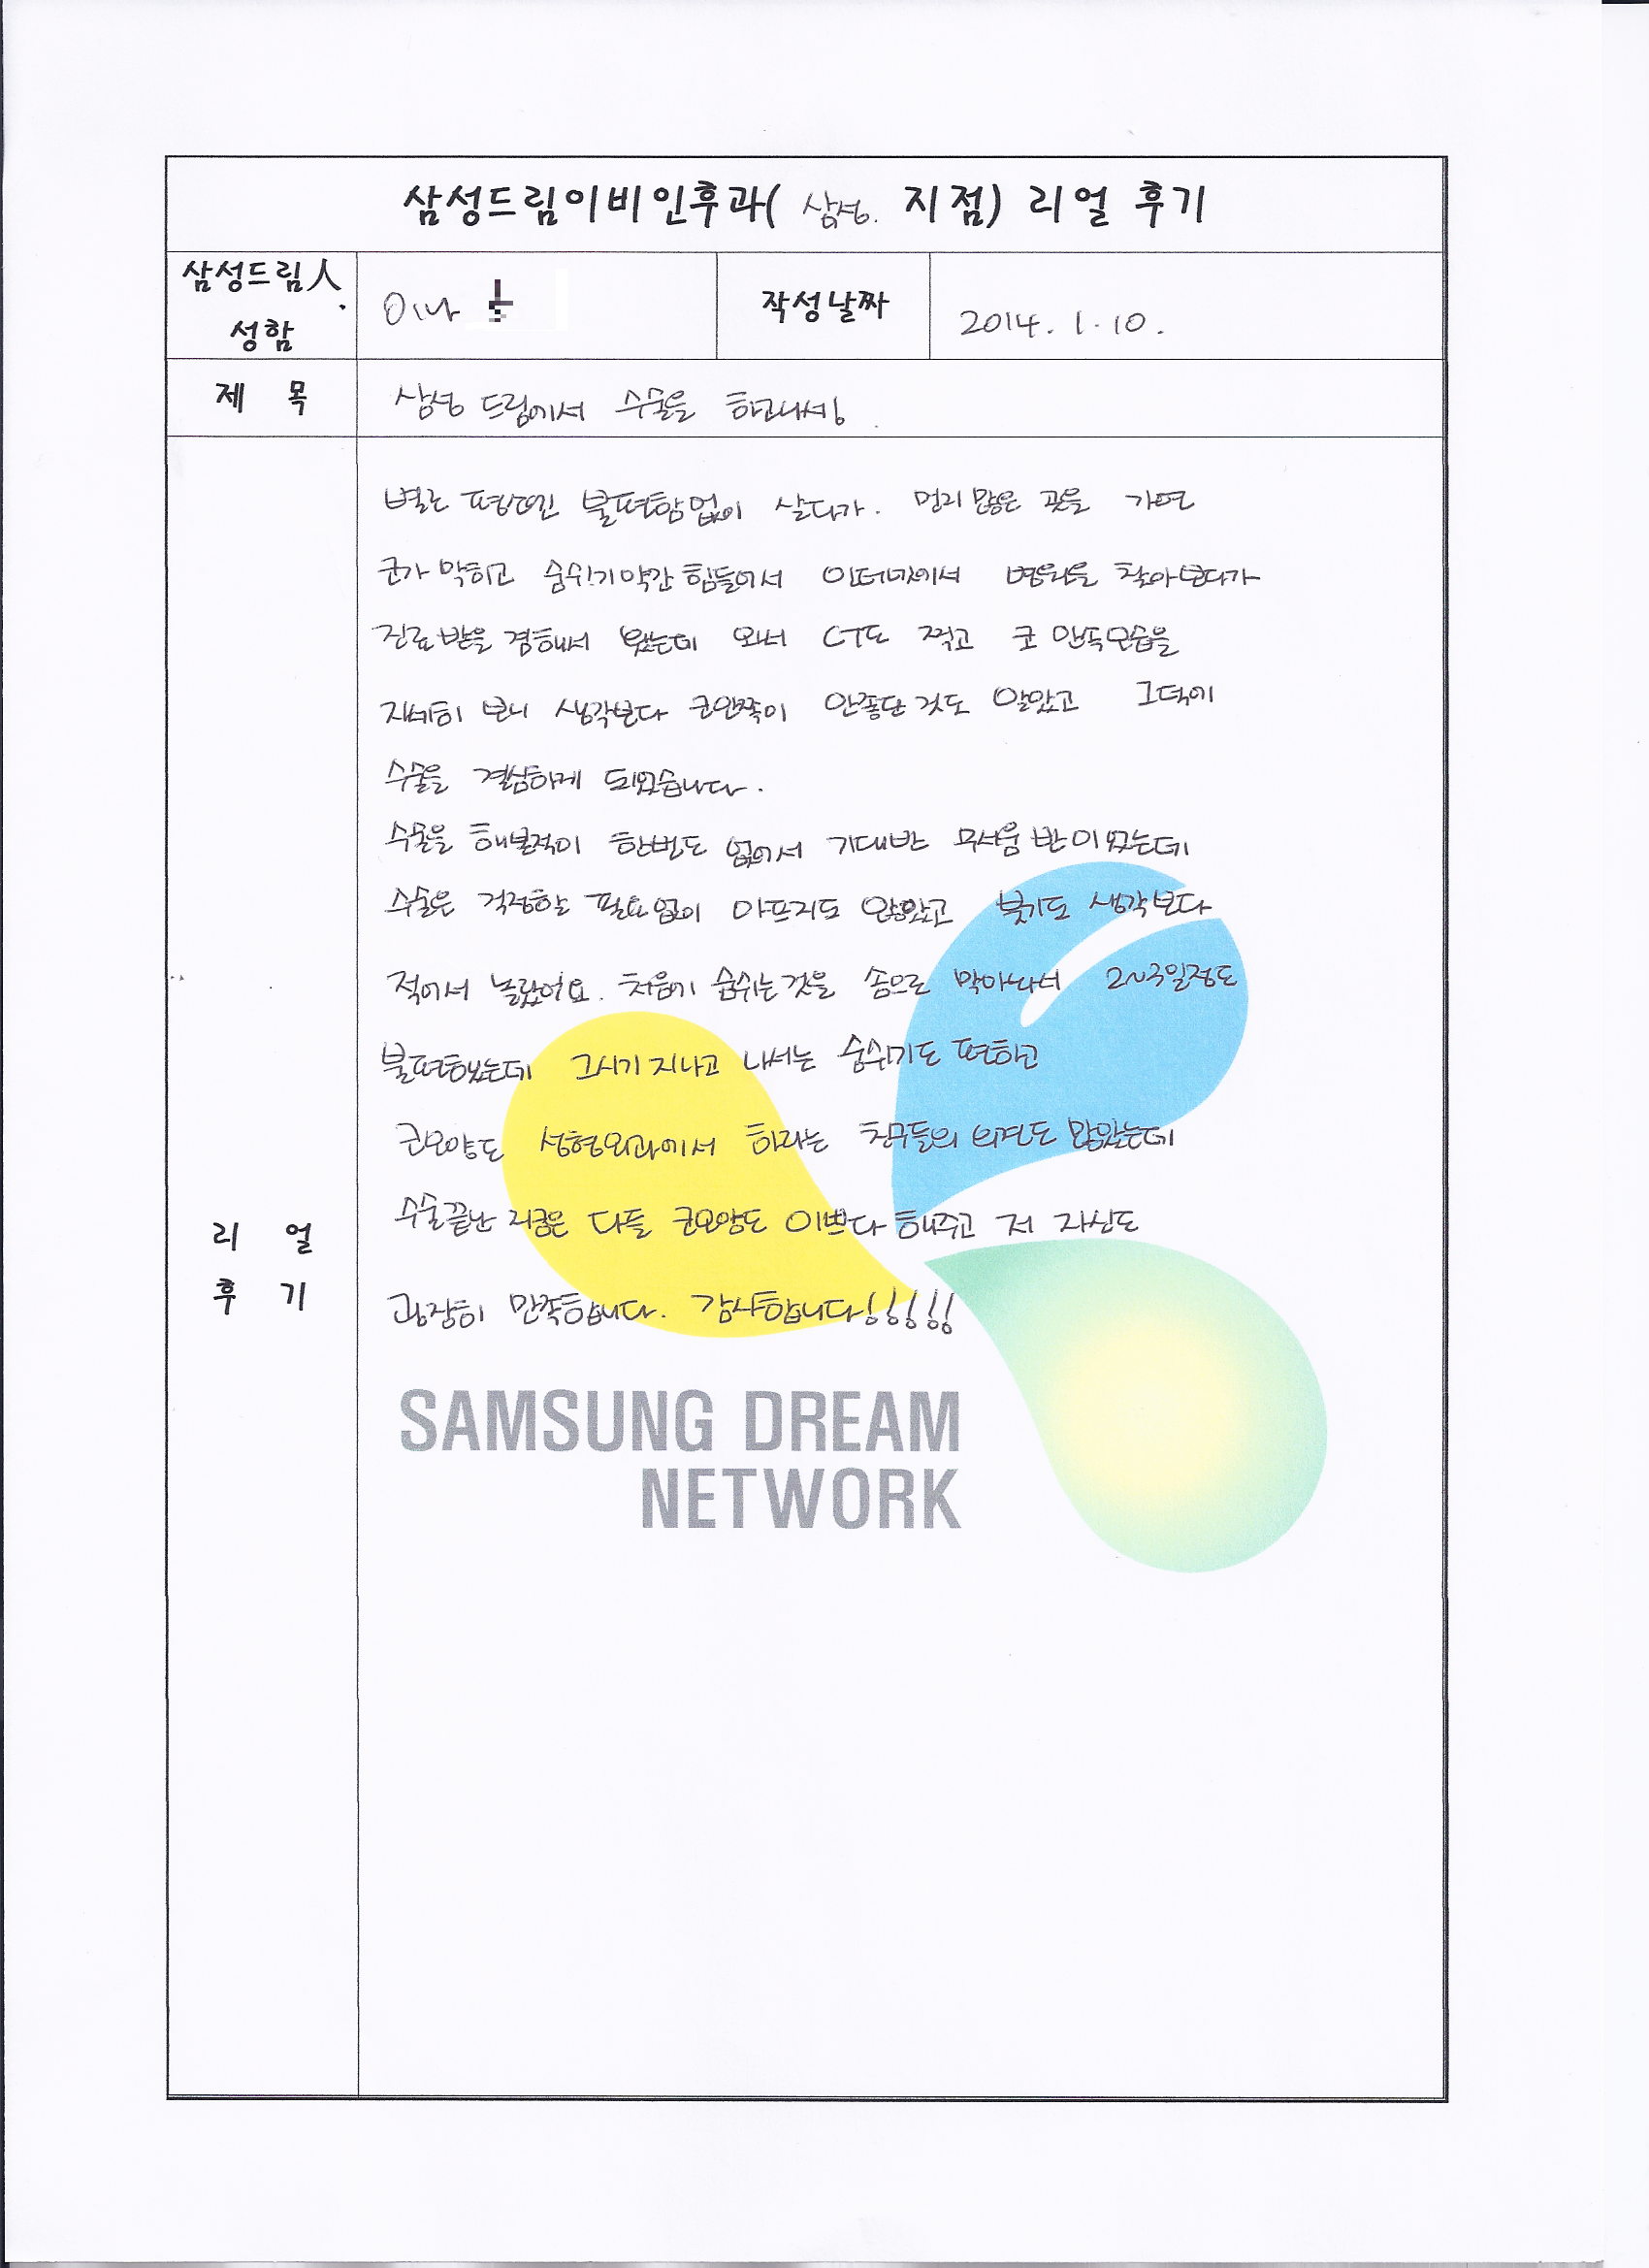 삼성드림이비인후과( 삼성. 지점) 리얼 후기
삼성드림人
성함
이나
작성날짜
2014. 1. 10.
제 목
삼성 드림에서 수술을 하고나서!
별로 평소엔 불편함없이 살다가. 먼지 많은 곳을 가면
코가 막히고 숨쉬기약간 힘들어서 인터넷에서 병원을 찾아보다가
진료받을 겸해서 왔는데 와서 CT도 찍고 코 안쪽모습을
자세히 보니 생각보다 코안쪽이 안좋단 것도 알았고 그덕에
수술을 결심하게 되었습니다.
수술을 해본적이 한번도 없어서 기대반 무서움 반이였는데
수술은 걱정할 필요없이 아프지도 않았고 붓기도 생각보다
적어서 놀랐어요. 처음에 숨쉬는것을 솜으로 막아놔서 2~3일정도
불편했는데 그시기 지나고 나서는 숨쉬기도 편하고
코모양도 성형외과에서 하라는 친구들의 의견도 많았는데
수술끝난 지금은 다들 코모양도 이쁘다 해주고 저 자신도
굉장히 만족합니다. 감사합니다!!!!!
리 얼
후 기
SAMSUNG DREAM
NETWORK